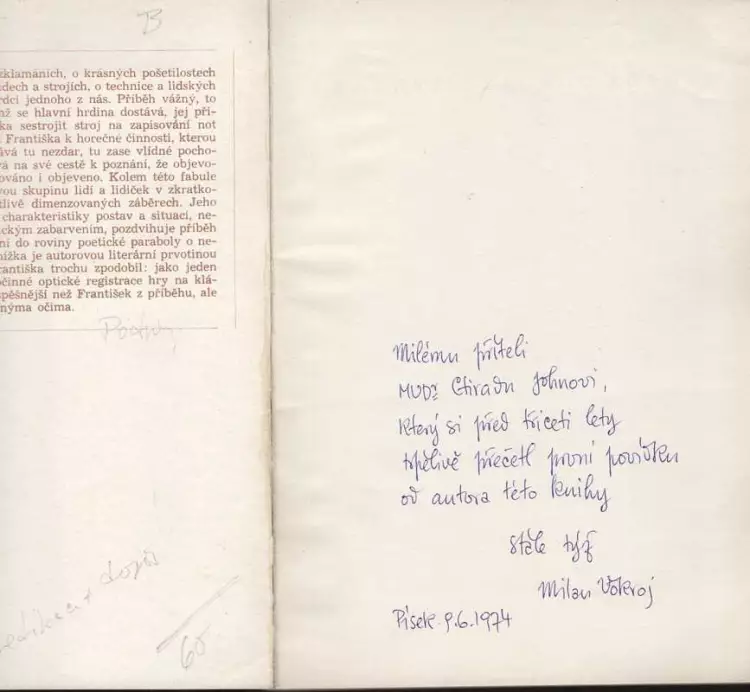 B
zklamáních, o krásných pošetilostech
idech a strojích, o technice a lidských
rdci jednoho z nás. Příběh vážný, to
mž se hlavní hrdina dostává, jej při-
ka sestrojit stroj na zapisování not
Františka k horečné činnosti, kterou
ává tu nezdar, tu zase vlídné pocho-
vá na své cestě k poznání, že objevo-
ováno i objeveno. Kolem této fabule
vou skupinu lidí a lidiček v zkratko-
tlivě dimenzovaných záběrech. Jeho
charakteristiky postav a situací, ne-
ickým zabarvením, pozdvihuje příběh
ní do roviny poetické paraboly o ne-
nížka je autorovou literární prvotinou
rantiška trochu zpodobil: jako jeden
činné optické registrace hry na klá-
spěšnější než František z příběhu, ale
nýma očima.
dopis
60
Milému příteli
MUDr Ctiradu Johnovi,
který si před třiceti lety
trpělivě přečetl první povídku
od autora této knihy
stále týž
Milan Vokroj
Písek 9.6.1974